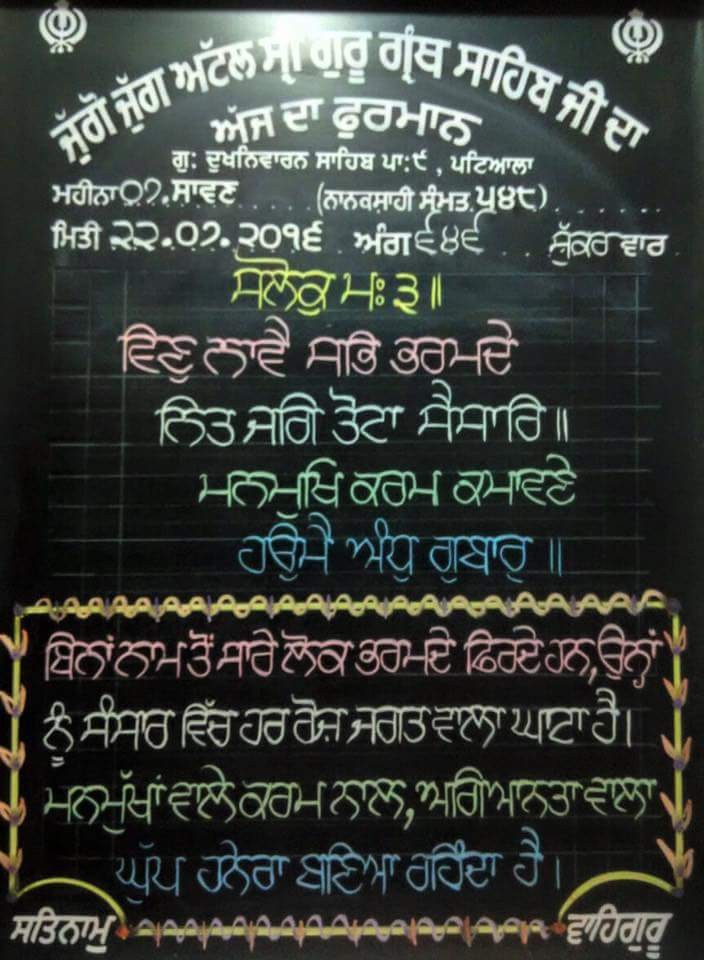 ਜੁੱਗੋ ਜੁੱਗ ਅਟੱਲ ਸ੍ਰੀ ਗੁਰੂ ਗ੍ਰੰਥ ਸਾਹਿਬ ਜੀ ਦਾ
ਅੱਜ ਦਾ ਫੁਰਮਾਨ
ਗੁ: ਦੁਖਨਿਵਾਰਨ ਸਾਹਿਬ ਪਾ:੯, ਪਟਿਆਲਾ
ਮਹੀਨਾ ੦੭. ਸਾਵਣ (ਨਾਨਕਸਾਹੀ ਸੰਮਤ ੫੪੮)
ਮਿਤੀ ੨੨.੦੭.੨੦੧੬ ਅੰਗ ੬੪੬ ਸ਼ੁੱਕਰ ਵਾਰ
ਸਲੋਕੁ ਮਃ ੩॥
ਵਿਣੁ ਨਾਵੈ ਸਭਿ ਭਰਮਦੇ
ਨਿਤ ਜਗਿ ਤੋਟਾ ਸੈਸਾਰਿ॥
ਮਨਮੁਖਿ ਕਰਮ ਕਮਾਵਣੇ
ਹਉਮੈ ਅੰਧੁ ਗੁਬਾਰੁ॥
ਬਿਨਾਂ ਨਾਮ ਤੋਂ ਸਾਰੇ ਲੋਕ ਭਰਮਦੇ ਫਿਰਦੇ ਹਨ, ਉਨ੍ਹਾਂ
ਨੂੰ ਸੰਸਾਰ ਵਿੱਚ ਹਰ ਰੋਜ਼ ਜਗਤ ਵਾਲਾ ਘਾਟਾ ਹੈ।
ਮਨਮੁੱਖਾਂ ਵਾਲੇ ਕਰਮ ਨਾਲ, ਅਗਿਆਨਤਾ ਵਾਲਾ
ਘੁੱਪ ਹਨੇਰਾ ਬਣਿਆ ਰਹਿੰਦਾ ਹੈ।
ਸਤਿਨਾਮੁ ਵਾਹਿਗੁਰੂ